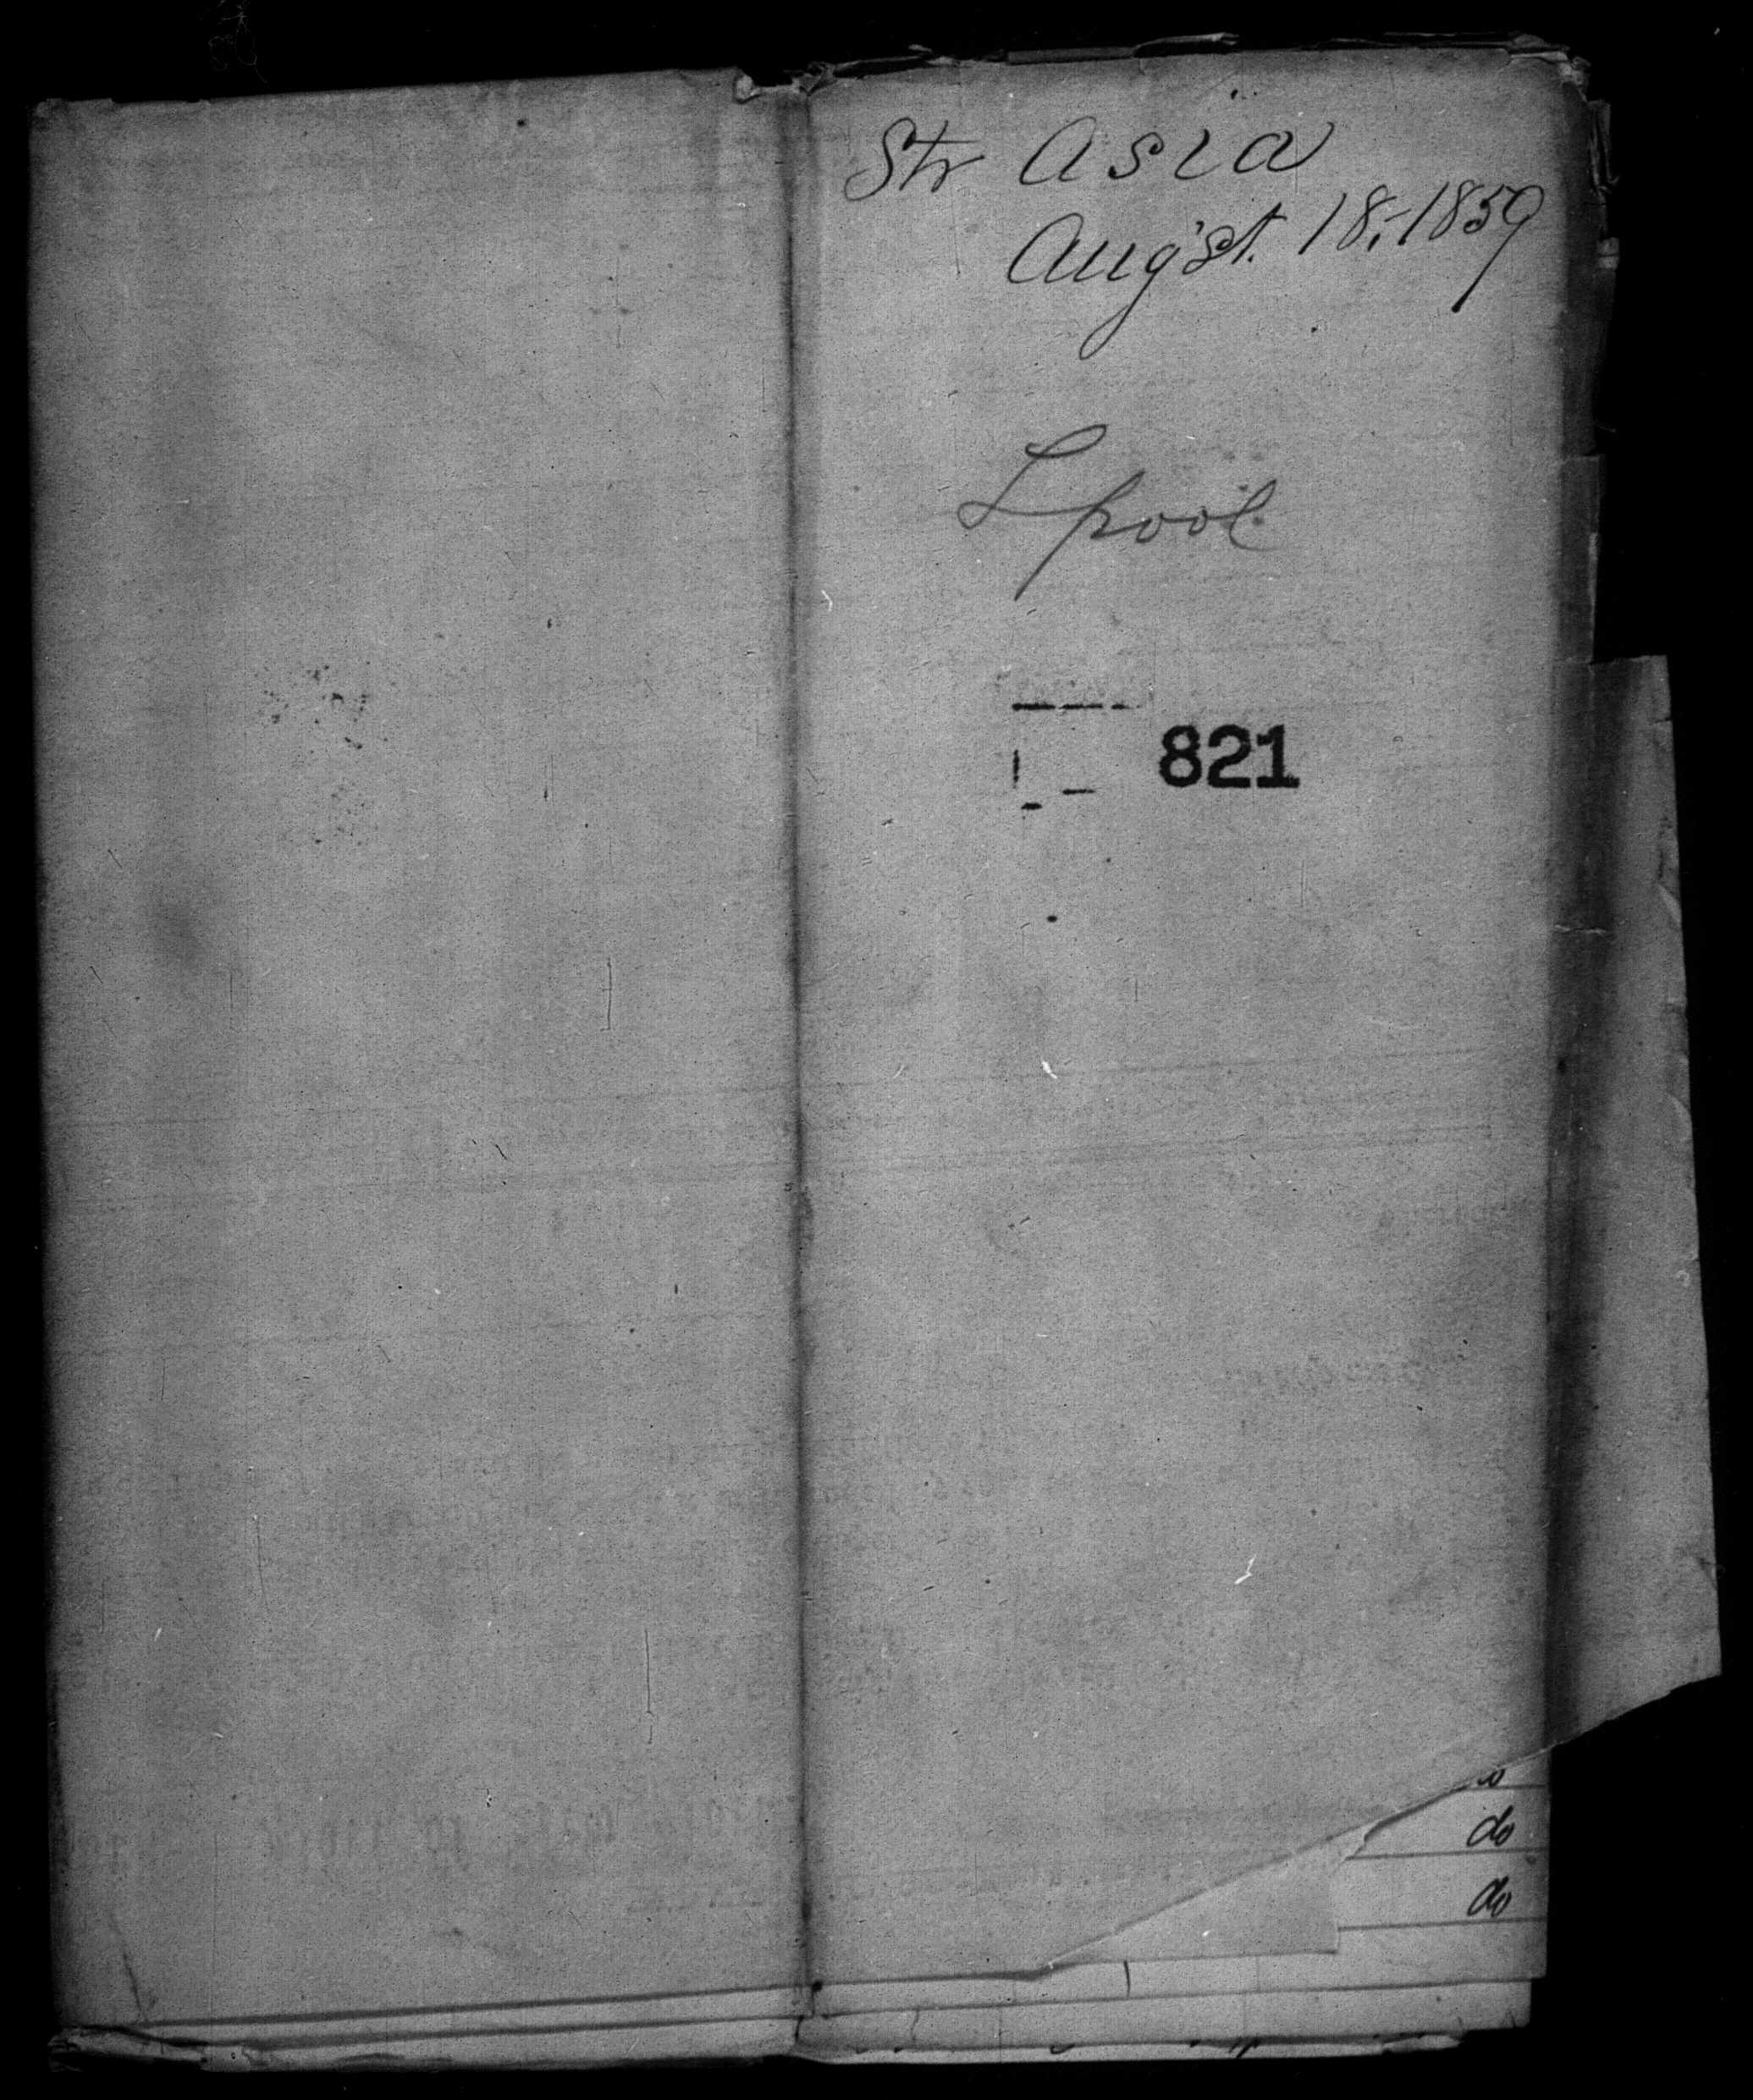 Str Asia
Aug'st. 18,-1859
Lpool
821
do
do